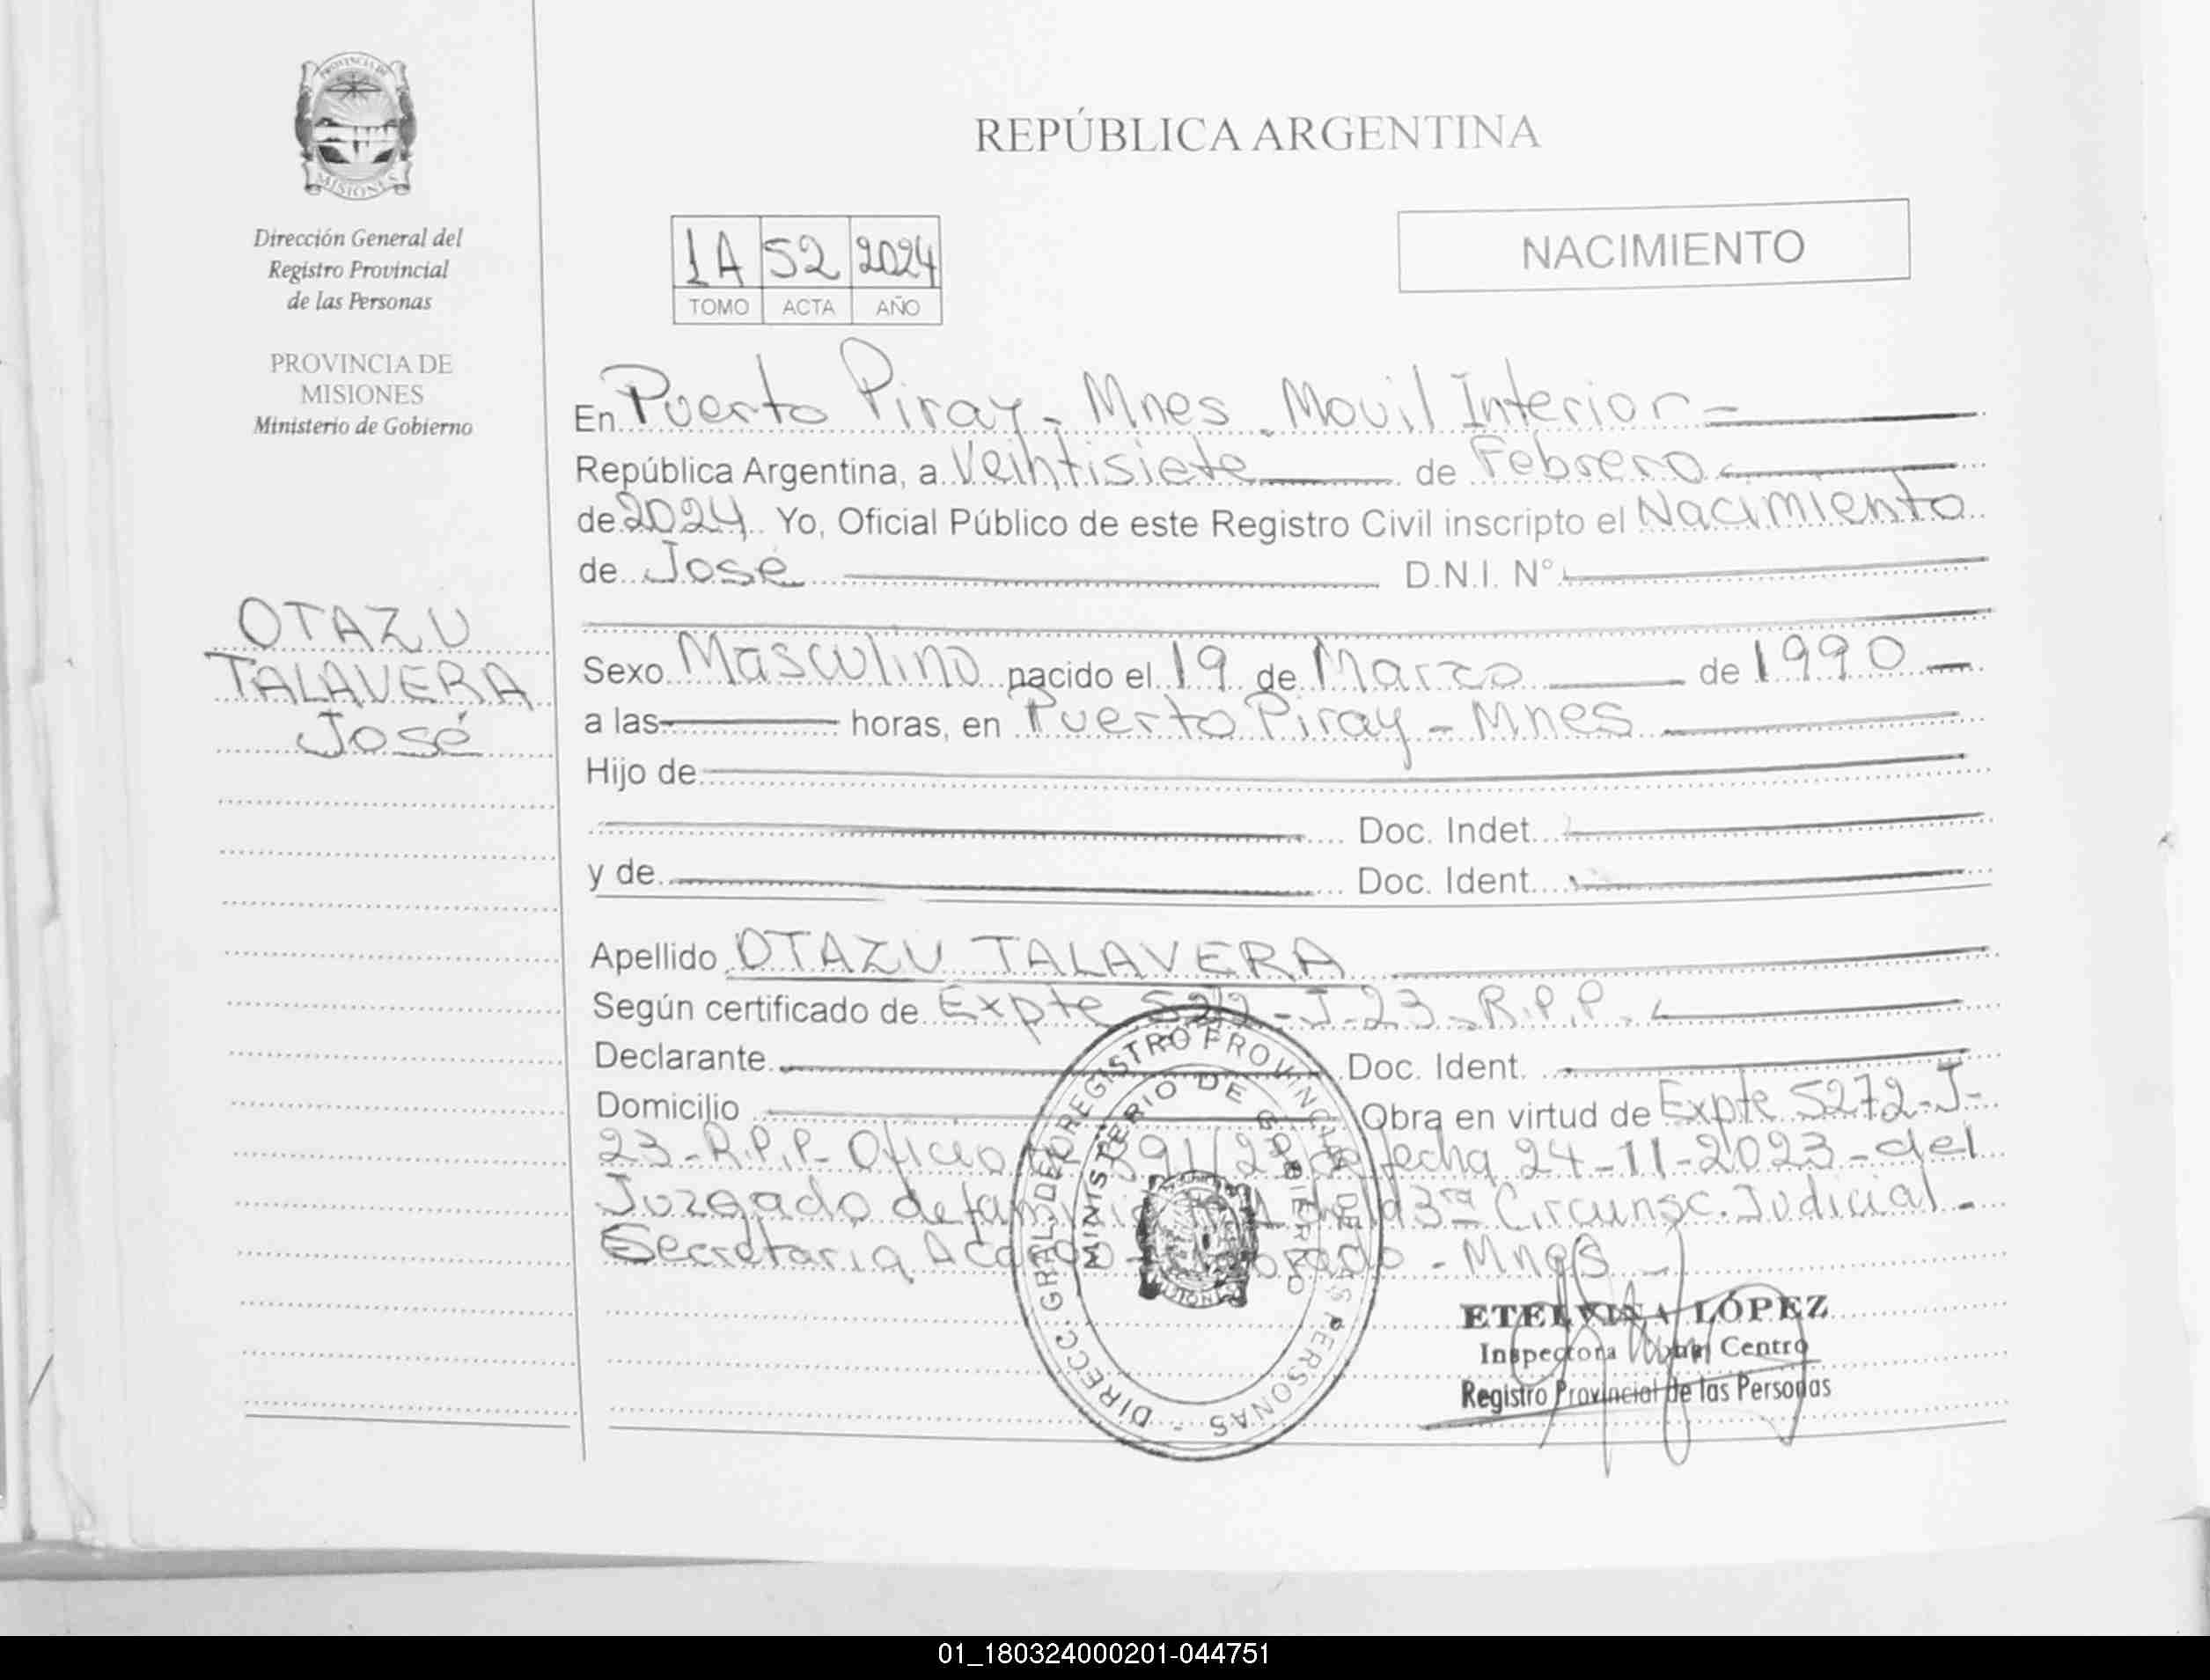 PROVINCIA DE
MISIONES
Dirección General del
Registro Provincial
de las Personas
PROVINCIA DE
MISIONES
Ministerio de Gobierno
OTAZU
TALAVERA
José
REPÚBLICA ARGENTINA
1A 52 2024
TOMO ACTA AÑO
NACIMIENTO
En Puerto Piray - Mnes - Movil Interior -
República Argentina, a Veintisiete de Febrero
de 2024 Yo, Oficial Público de este Registro Civil inscripto el Nacimiento
de José D.N.I. N°
Sexo Masculino nacido el 19 de Marzo de 1990
a las horas, en Puerto Piray - Mnes
Hijo de
Doc. Indet.
y de Doc. Ident.
Apellido OTAZU TALAVERA
Según certificado de Expte - J - 23 - R.P.P.
Declarante Doc. Ident.
Domicilio Obra en virtud de Expte 5272-J-
23 - R.P.P - Oficio fecha 24-11-2023 - del
Juzgado de familia de la 3ra Circunsc. Judicial -
Secretaria - Mnes
DIRECC. GRAL. DEL REGISTRO PROVINCIAL DE LAS PERSONAS -
MINISTERIO DE GOBIERNO
MISIONES
ETELVINA LÓPEZ
Inspectora Centro
Registro Provincial de las Personas
01_180324000201-044751